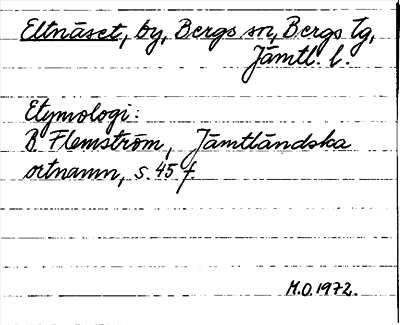 Eltnäset, by, Bergs sn, Bergs tg,
Jämtl. l.
Etymologi:
B. Flemström, Jämtländska
ortnamn, s. 45 f.
M.O. 1972.